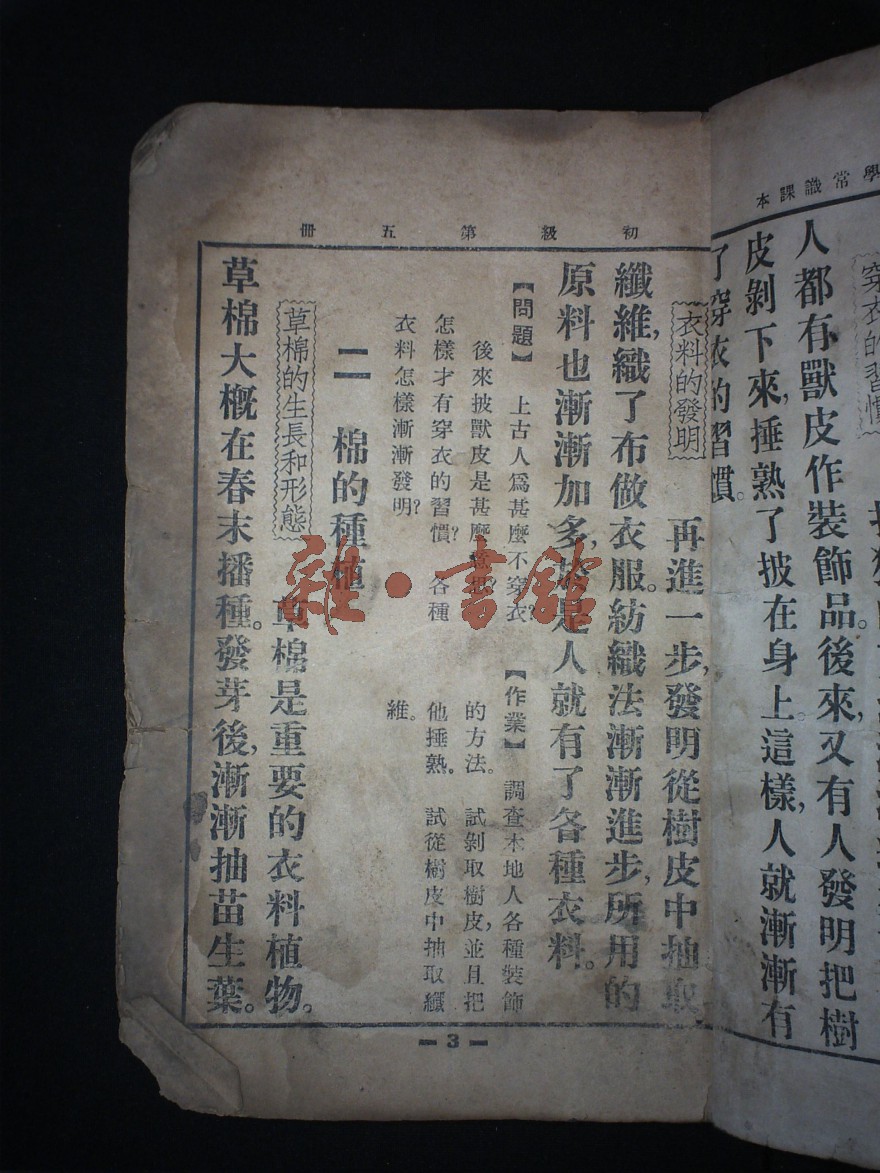 學常識課本
穿衣的習慣
人都有獸皮作裝飾品。後來,又有人發明把樹
皮剝下來,捶熟了披在身上。這樣,人就漸漸有
了穿衣的習慣。
初級第五冊
衣料的發明
再進一步,發明從樹皮中抽取
纖維,織了布做衣服。紡織法漸漸進步,所用的
原料也漸漸加多,於是人就有了各種衣料。
【問題】 上古人爲甚麼不穿衣?
後來披獸皮是甚麼意思?
怎樣才有穿衣的習慣? 各種
衣料怎樣漸漸發明?
【作業】 調查本地人各種裝飾
的方法。 試剝取樹皮,並且把
他捶熟。 試從樹皮中抽取纖
維。
二 棉的種植
草棉的生長和形態
草棉是重要的衣料植物。
草棉大概在春末播種。發芽後,漸漸抽苗生葉。
3
雜·書館